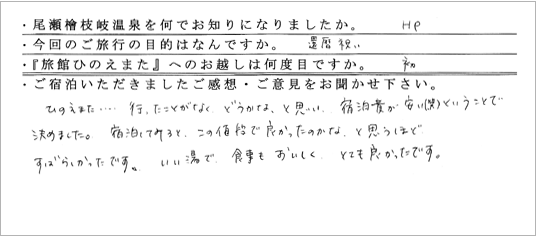 ・尾瀬檜枝岐温泉を何でお知りになりましたか。 HP
・今回のご旅行の目的はなんですか。 還暦祝い
・『旅館ひのえまた』へのお越しは何度目ですか。 初
・ご宿泊いただきましたご感想・ご意見をお聞かせ下さい。
ひのえまた‥‥ 行ったことがなく、どうかな、と思い、宿泊費が安い(関)ということで
決めました。 宿泊してみると、この値段で良かったのかな、と思うほど
すばらしかったです。 いい湯で、食事もおいしく、とても良かったです。